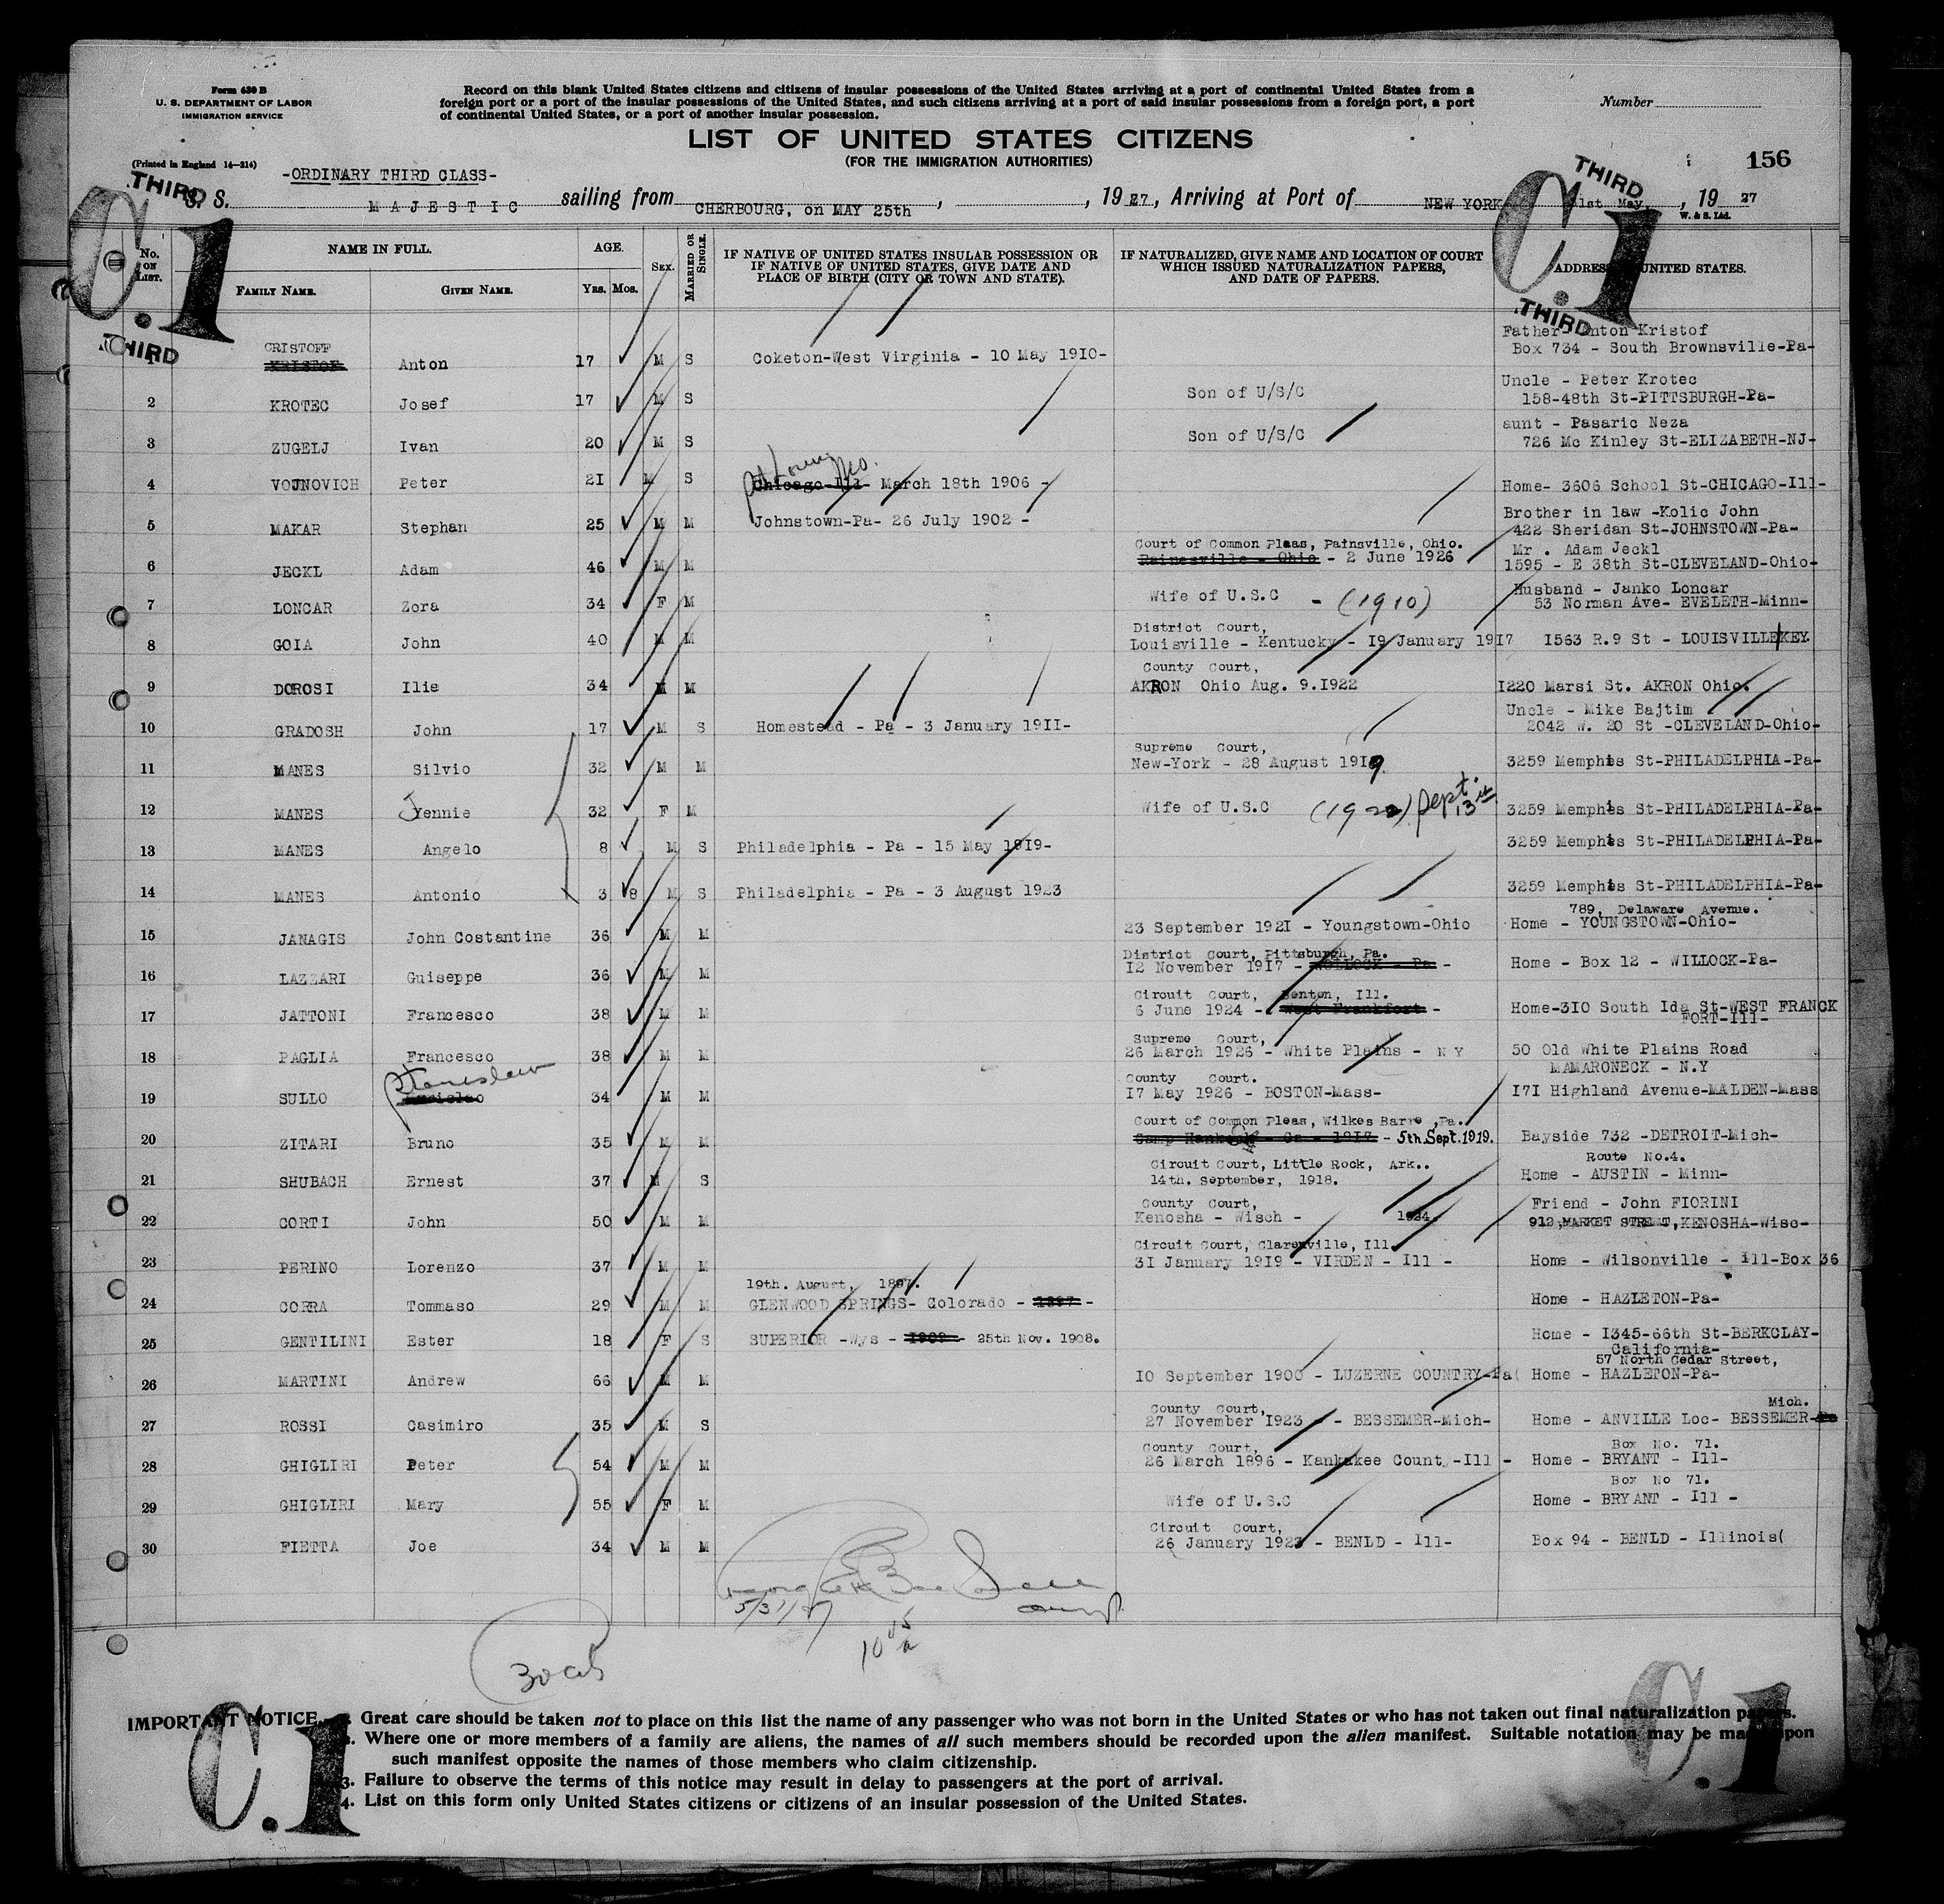 Form 630 B
U. S. DEPARTMENT OF LABOR
IMMIGRATION SERVICE
Record on this blank United States citizens and citizens of insular possessions of the United States arriving at a port of continental United States from a
foreign port or a port of the insular possessions of the United States, and such citizens arriving at a port of said insular possessions from a foreign port, a port
of continental United States, or a port of another insular possession.
Number
LIST OF UNITED STATES CITIZENS
(FOR THE IMMIGRATION AUTHORITIES)
156
(Printed in England 14-214)
-ORDINARY THIRD CLASS-
THIRD C.1 THIRD
THIRD C.1 THIRD
S. S. MAJESTIC sailing from CHERBOURG, on MAY 25th, 1927, Arriving at Port of NEW YORK May, 1927
W. & S. Ltd.
No. ON LIST. NAME IN FULL. FAMILY NAME. GIVEN NAME. AGE. Yrs. Mos. SEX. MARRIED OR SINGLE. IF NATIVE OF UNITED STATES INSULAR POSSESSION OR IF NATIVE OF UNITED STATES, GIVE DATE AND PLACE OF BIRTH (CITY OR TOWN AND STATE). IF NATURALIZED, GIVE NAME AND LOCATION OF COURT WHICH ISSUED NATURALIZATION PAPERS, AND DATE OF PAPERS. ADDRESS UNITED STATES.
CRISTOFF Father- Anton Kristof
1 KRISTOF Anton 17 M S Coketon-West Virginia - 10 May 1910- Box 734 - South Brownsville-Pa-
Uncle - Peter Krotec
2 KROTEC Josef 17 M S Son of U/S/C 158-48th St-PITTSBURGH-Pa-
aunt - Pasaric Neza
3 ZUGELJ Ivan 20 M S Son of U/S/C 726 Mc Kinley St-ELIZABETH-NJ-
St Louis Mo.
4 VOJNOVICH Peter 21 M S Chicago-Ill- March 18th 1906 - Home- 3606 School St-CHICAGO-Ill-
Brother in law -Kolic John
5 MAKAR Stephan 25 M M Johnstown-Pa- 26 July 1902 - 422 Sheridan St-JOHNSTOWN-Pa-
Court of Common Pleas, Painsville, Ohio. Mr . Adam Jeckl
6 JECKL Adam 46 M M Painesville - Ohio - 2 June 1926 1595 - E 38th St-CLEVELAND-Ohio-
Husband - Janko Loncar
7 LONCAR Zora 34 F M Wife of U.S.C - (1910) 53 Norman Ave- EVELETH-Minn-
District Court,
8 GOIA John 40 M M Louisville - Kentucky - 19 January 1917 1563 R.9 St - LOUISVILLE KEY.
County Court,
9 DOROSI Ilie 34 M M AKRON Ohio Aug. 9.1922 1220 Marsi St. AKRON Ohio.
Uncle - Mike Bajtim
10 GRADOSH John 17 M S Homestead - Pa - 3 January 1911- 2042 W. 20 St -CLEVELAND-Ohio-
Supreme Court,
11 MANES Silvio 32 M M New-York - 28 August 1919. 3259 Memphis St-PHILADELPHIA-Pa-
12 MANES Jennie 32 F M Wife of U.S.C (1922) Sept. 13th 3259 Memphis St-PHILADELPHIA-Pa-
13 MANES Angelo 8 M S Philadelphia - Pa - 15 May 1919- 3259 Memphis St-PHILADELPHIA-Pa-
14 MANES Antonio 3 8 M S Philadelphia - Pa - 3 August 1923 3259 Memphis St-PHILADELPHIA-Pa-
789, Delaware Avenue.
15 JANAGIS John Costantine 36 M M 23 September 1921 - Youngstown-Ohio Home - YOUNGSTOWN-Ohio-
District Court, Pittsburgh, Pa.
16 LAZZARI Guiseppe 36 M M 12 November 1917 - WOLLOCK - Pa - Home - Box 12 - WILLOCK-Pa-
Circuit Court, Benton, Ill.
17 JATTONI Francesco 38 M M 6 June 1924 - West Frankfort - Home-310 South Ida St-WEST FRANCK
FORT-Ill-
Supreme Court,
18 PAGLIA Francesco 38 M M 26 March 1926 - White Plains - N Y 50 Old White Plains Road
MAMARONECK - N.Y
Stanislaw County Court.
19 SULLO 34 M M 17 May 1926 - BOSTON-Mass- 171 Highland Avenue-MALDEN-Mass
Court of Common Pleas, Wilkes Barre ,Pa.
20 ZITARI Bruno 35 M M Camp Hankock - Ga - 1917 - 5th.Sept.1919. Bayside 732 -DETROIT-Mich-
Circuit Court, Little Rock, Ark.. Route No.4.
21 SHUBACH Ernest 37 M S 14th. September, 1918. Home - AUSTIN - Minn-
County Court, Friend - John FIORINI
22 CORTI John 50 M M Kenosha - Wisch - 1924. 912,MARKET STREET,KENOSHA-Wisc-
Circuit Court, Clarenville, Ill.
23 PERINO Lorenzo 37 M M 31 January 1919 - VIRDEN - Ill - Home - Wilsonville - Ill-Box 36
19th. August, 1897.
24 CORRA Tommaso 29 M M GLENWOOD SPRINGS- Colorado - 1897 - Home - HAZLETON-Pa-
25 GENTILINI Ester 18 F S SUPERIOR -Wys - 1909 - 25th Nov. 1908. Home - 1345-66th St-BERKCLAY-
California-
57 North Cedar Street,
26 MARTINI Andrew 66 M M 10 September 1900 - LUZERNE COUNTRY-Pa( Home - HAZLETON-Pa-
County Court, Mich.
27 ROSSI Casimiro 35 M S 27 November 1923 - - BESSEMER-Mich- Home - ANVILLE Loc- BESSEMER-Pa
County Court, Box No. 71.
28 GHIGLIRI Peter 54 M M 26 March 1896 - Kankakee County-Ill - Home - BRYANT - Ill-
Box No 71.
29 GHIGLIRI Mary 55 F M Wife of U.S.C Home - BRYANT - Ill -
Circuit Court,
30 FIETTA Joe 34 M M 26 January 1923 - BENLD - Ill- Box 94 - BENLD - Illinois(
5/31/27
10 45 a
30
IMPORTANT NOTICE. Great care should be taken not to place on this list the name of any passenger who was not born in the United States or who has not taken out final naturalization papers.
Where one or more members of a family are aliens, the names of all such members should be recorded upon the alien manifest. Suitable notation may be made upon
such manifest opposite the names of those members who claim citizenship.
3. Failure to observe the terms of this notice may result in delay to passengers at the port of arrival.
4. List on this form only United States citizens or citizens of an insular possession of the United States.
C.1
C.1